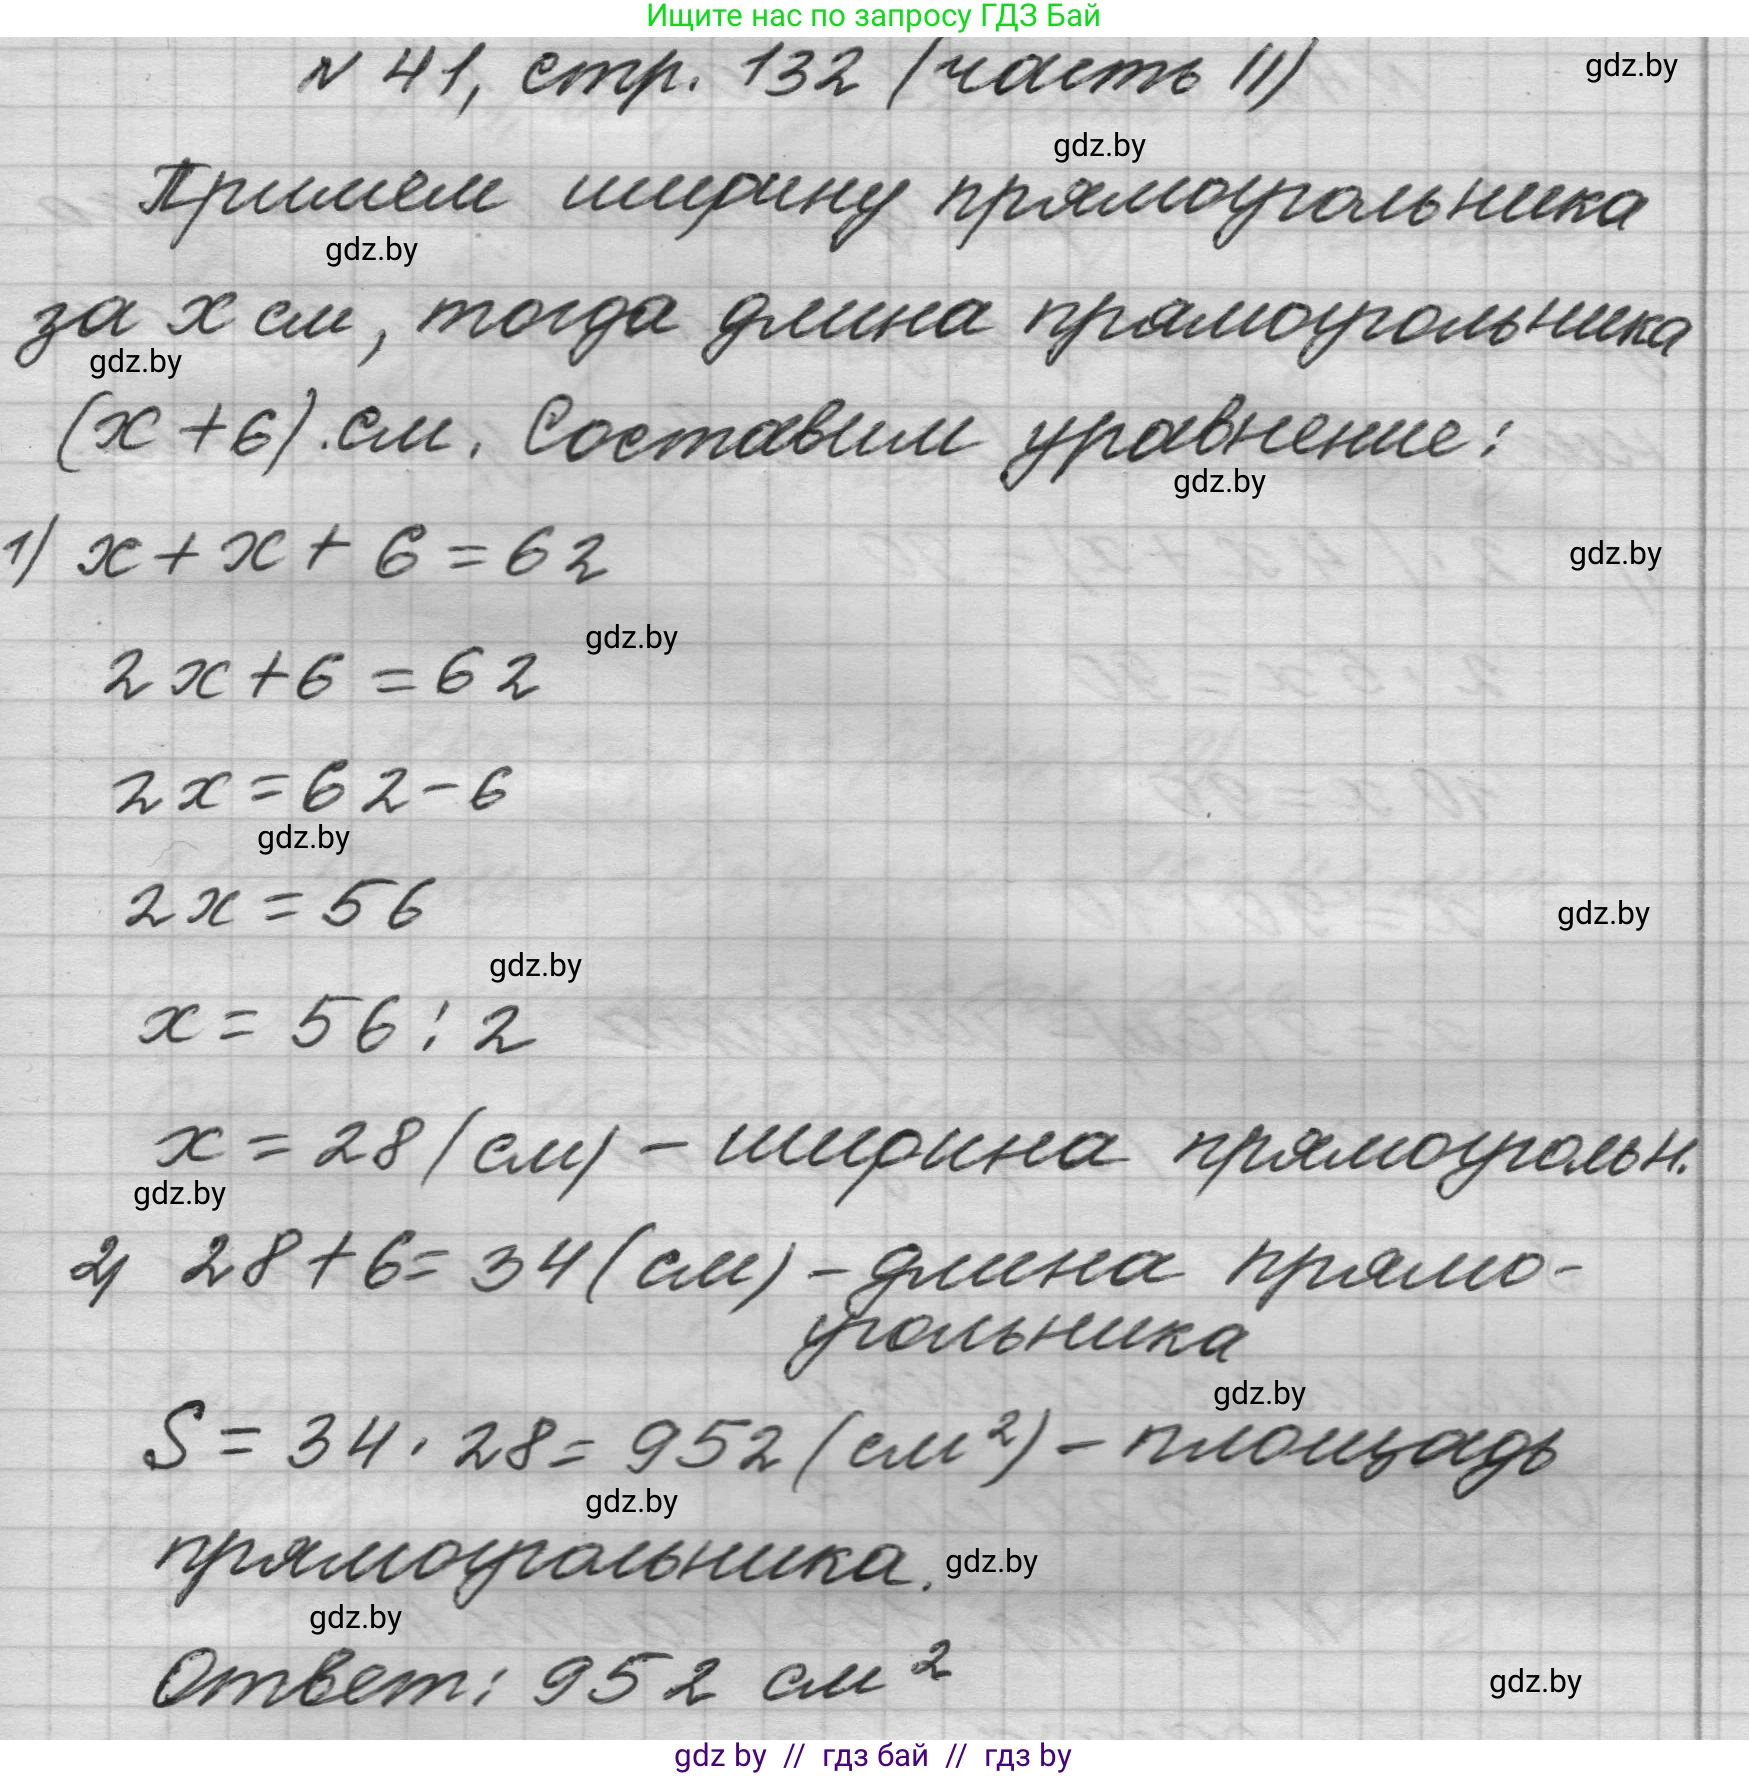 Ищите нас по запросу ГДЗ Бай
N 41, стр. 132 (часть II)
gdz.by
gdz.by
Примем ширину прямоугольника
gdz.by
за x см, тогда длина прямоугольника
gdz.by
(x + 6) см. Составим уравнение:
gdz.by
1) x + x + 6 = 62
gdz.by
gdz.by
2x + 6 = 62
2x = 62 - 6
gdz.by
2x = 56
gdz.by
gdz.by
x = 56 : 2
x = 28 (см) – ширина прямоугольн.
gdz.by
2) 28 + 6 = 34 (см) – длина прямо-
угольника
gdz.by
S = 34 · 28 = 952 (см²) – площадь
gdz.by
прямоугольника. gdz.by
gdz.by
Ответ: 952 см²
gdz.by
gdz by // гдз бай // гдз by